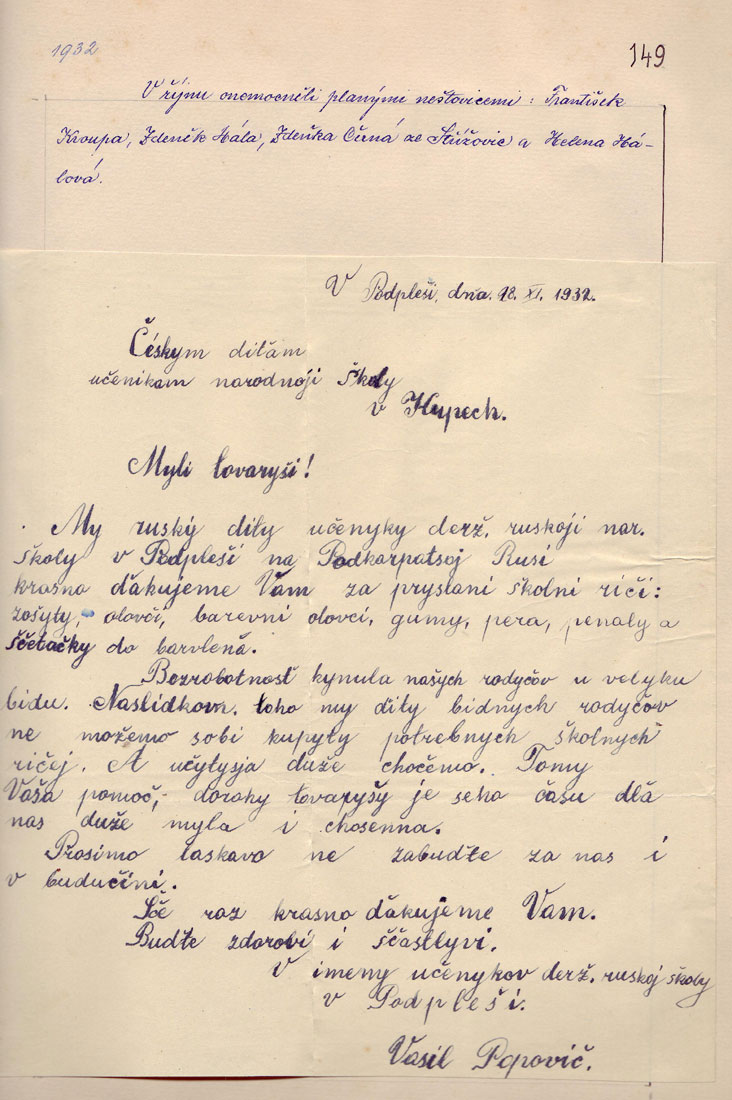 1932
149
V říjnu onemocněli planými neštovicemi: František
Kroupa, Zdeněk Hála, Zdeňka Černá ze Střížovic a Helena Há-
lová.
V Podpleši, dňa. 18. XI. 1932.
Českym dităm
učenikam narodnoji školy
v Hupech.
Myli tovaryši!
My ruský dity učenyky derž. ruskoji nar.
školy v Podpleši na Podkarpatsoj Rusi
krasno ďakujeme Vam za pryslani školni riči:
zošyty, olovci, barevni olovci, gumy, pera, penaly a
ščetačky do barvleňa.
Bezrobotnosť kynula našych rodyčov u velyku
bidu. Naslidkom toho my dity bidnych rodyčov
ne možemo sobi kupyty potrebnych školnych
ričej. A učytysja duže chočemo. Tomy
Vaša pomoč, dorahy tovaryšy je seho času dľa
nas duže myla i chosenna.
Prosimo laskavo ne zabuďte za nas i
v budučini.
Šče raz krasno ďakujeme Vam.
Buďte zdorobi i ščastlyvi.
V imeny učenykov derž. ruskoj školy
v Podpleši.
Vasil Popovič.